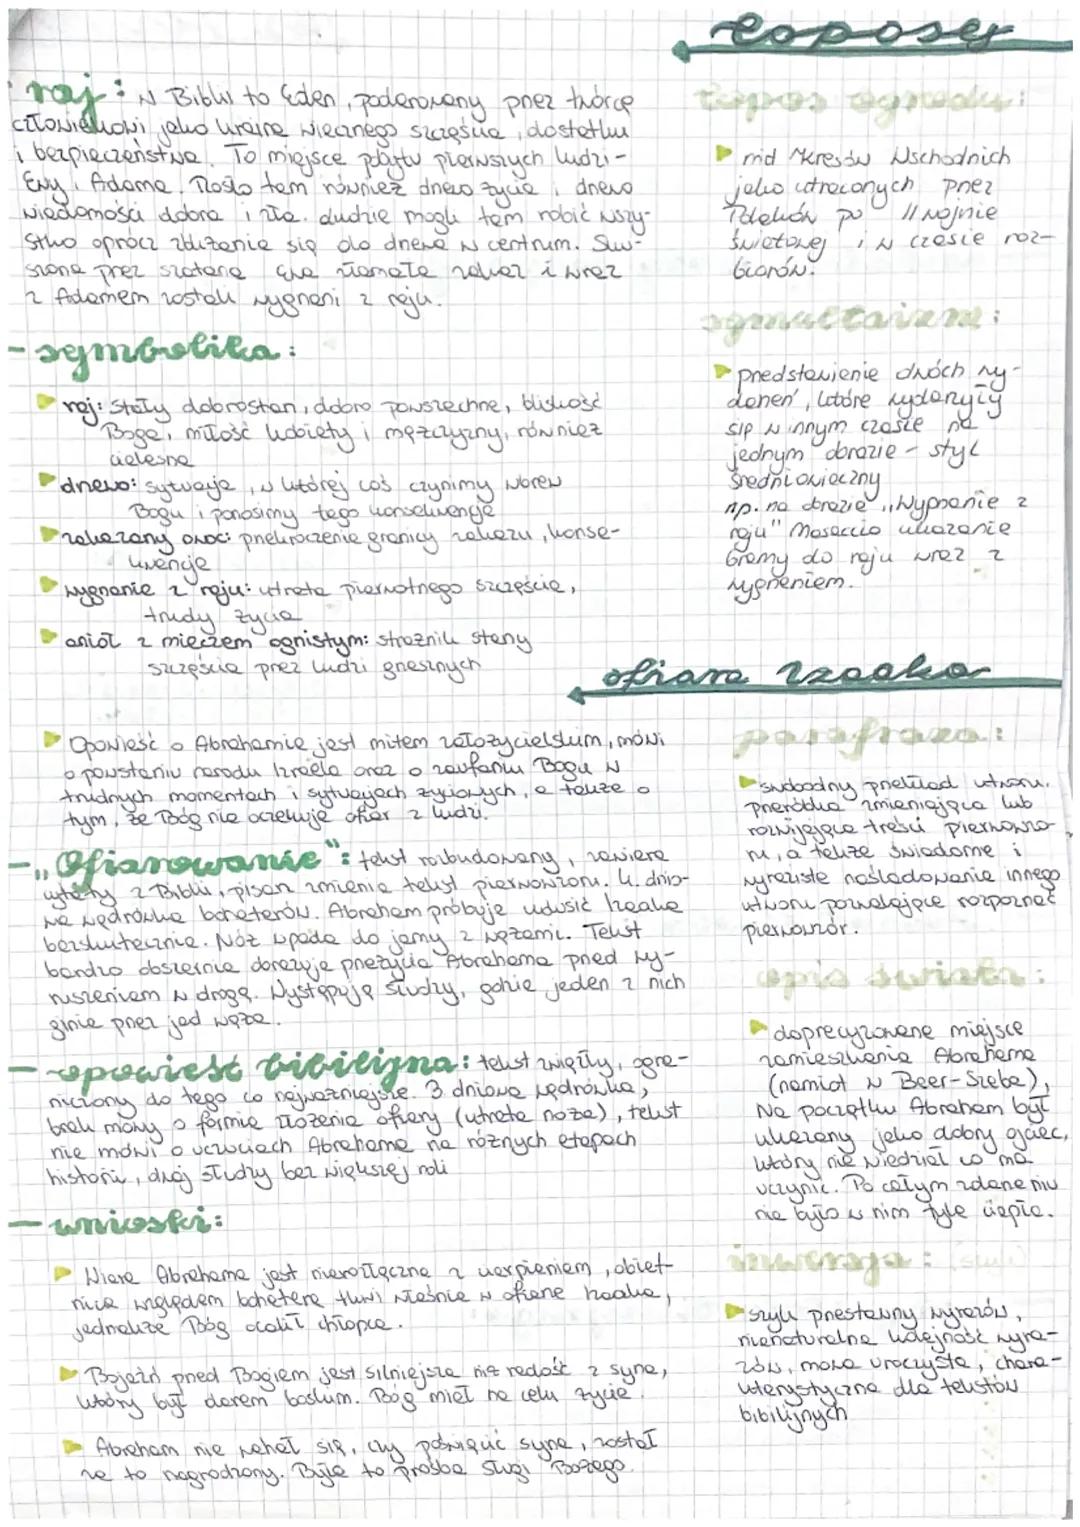 toposy
raj: w Biblii to Eden, podarowany przez twórcę
człowiekowi jako kraina wiecznego szczęścia, dostatku
i bezpieczeństwa. To miejsce pobytu pierwszych ludzi -
Ewy i Adama. Rosło tam również drzewo życia i drzewo
wiadomości dobra i zła. Ludzie mogli tam robić wszy-
stko oprócz zbliżania się do drzewa w centrum. Sku-
szona przez szatana Ewa złamała zakaz i wraz
z Adamem zostali wygnani z raju.
- symbolika:
raj: stały dobrostan, dobro powszechne, bliskość
Boga, miłość kobiety i mężczyzny, również
cielesna
drzewo: sytuacja, w której coś czynimy wbrew
Bogu i ponosimy tego konsekwencje
zakazany owoc: przekroczenie granicy zakazu, konse-
kwencje
wygnanie z raju: utrata pierwotnego szczęścia,
trudy życia
anioł z mieczem ognistym: strażnik stanu
szczęścia przez ludzi grzesznych
topos ogrodu:
mit Kresów Wschodnich
jako utraconych przez
Polaków po II wojnie
światowej i w czasie roz-
biorów.
symultaizm:
przedstawienie dwóch wy-
darzeń, które wydarzyły
się w innym czasie na
jednym obrazie - styl
średniowieczny
np. na obrazie "Wygnanie z
raju" Masaccio ukazanie
bramy do raju wraz z
wygnaniem.
ofiara Izaaka
Opowieść o Abrahamie jest mitem założycielskim, mówi
o powstaniu narodu Izraela oraz o zaufaniu Bogu w
trudnych momentach i sytuacjach życiowych, a także o
tym, że Bóg nie oczekuje ofiar z ludzi.
- "Ofiarowanie": tekst rozbudowany, zawiera
cytaty z Biblii, pisarz zmienia tekst pierwowzoru. 4. dnio-
wa wędrówka bohaterów. Abraham próbuje udusić Izaaka
bezskutecznie. Nóż wpada do jamy z wężami. Tekst
bardzo obszernie obrazuje przeżycia Abrahama przed wy-
ruszeniem w drogę. Występują słudzy, gdzie jeden z nich
ginie przez jad węża.
- opowieść bibilijna: tekst zwięzły, ogra-
niczony do tego co najważniejsze. 3 dniowa wędrówka,
brak mowy o formie złożenia ofiary (utrata noża), tekst
nie mówi o uczuciach Abrahama na różnych etapach
historii, dwaj słudzy bez większej roli
- wnioski:
Wiara Abrahama jest nierozłączna z cierpieniem, obiet-
nica względem bohatera tkwi właśnie w ofierze Izaaka,
jednakże Bóg ocalił chłopca.
Bojaźń przed Bogiem jest silniejsza niż radość z syna,
który był darem boskim. Bóg miał na celu życie.
Abraham nie wahał się, czy poświęcić syna, został
za to nagrodzony. Była to prośba sługi Bożego.
parafraza:
swobodny przekład utworu,
przeróbka zmieniająca lub
rozwijająca treści pierwowzo-
ru, a także świadome i
wyraziste naśladowanie innego
utworu pozwalające rozpoznać
pierwowzór.
opis świata:
doprecyzowane miejsce
zamieszkania Abrahama
(namiot w Beer-Szeba),
Na początku Abraham był
ukazany jako dobry ojciec,
który nie wiedział co ma
uczynić. Po całym zdarzeniu
nie było w nim tyle ciepła.
inwersja: (szyk)
szyk przestawny wyrazów,
nienaturalna kolejność wyra-
zów, mowa uroczysta, chara-
kterystyczna dla tekstów
bibilijnych